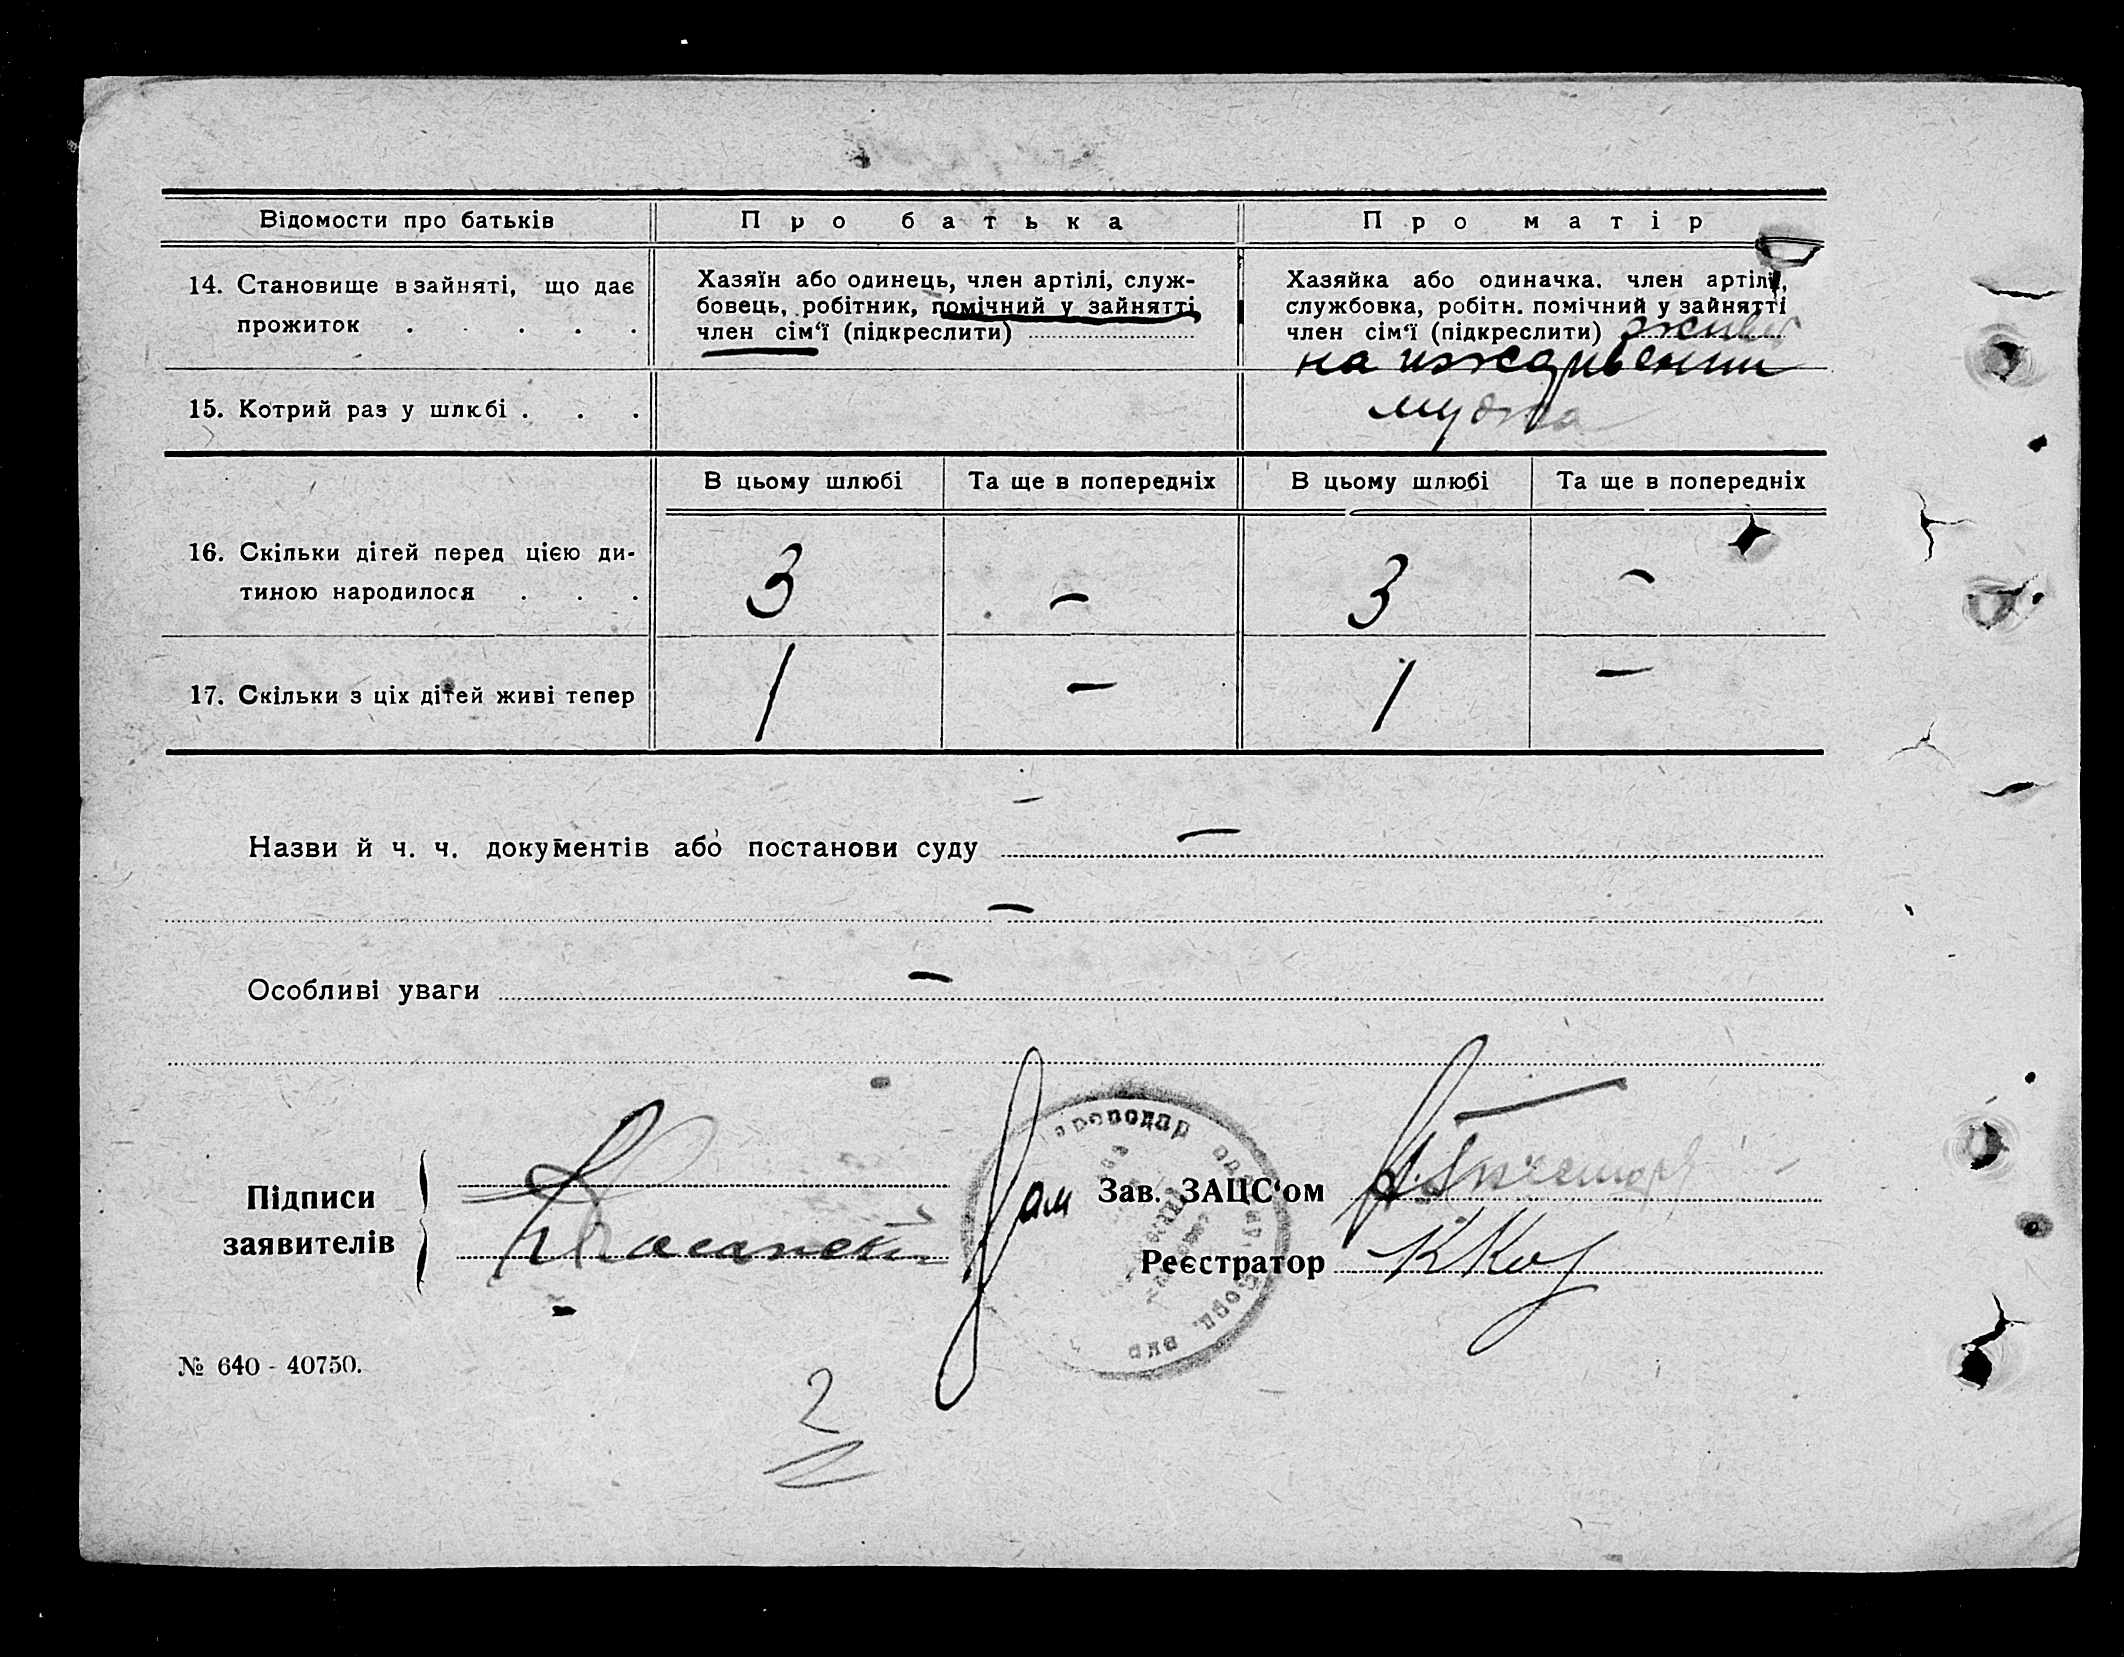 Відомости про батьків
Про батька
Про матір
14. Становище в зайняті, що дає
прожиток . . . . .
Хазяїн або одинець, член артілі, служ-
бовець, робітник, помічний у зайнятті
член сім‘ї (підкреслити)
Хазяйка або одиначка. член артілі,
службовка, робітн. помічний у зайнятті
член сім‘ї (підкреслити) живет
на иждивении
мужа
15. Котрий раз у шлюбі . . .
В цьому шлюбі
Та ще в попередніх
В цьому шлюбі
Та ще в попередніх
16. Скільки дітей перед цією ди-
тиною народилося . . .
3
–
3
–
17. Скільки з ціх дітей живі тепер
1
–
1
–
Назви й ч. ч. документів або постанови суду –
–
Особливі уваги –
Підписи
заявителів
Зав. ЗАЦС‘ом
Реєстратор
№ 640 - 40750.
2